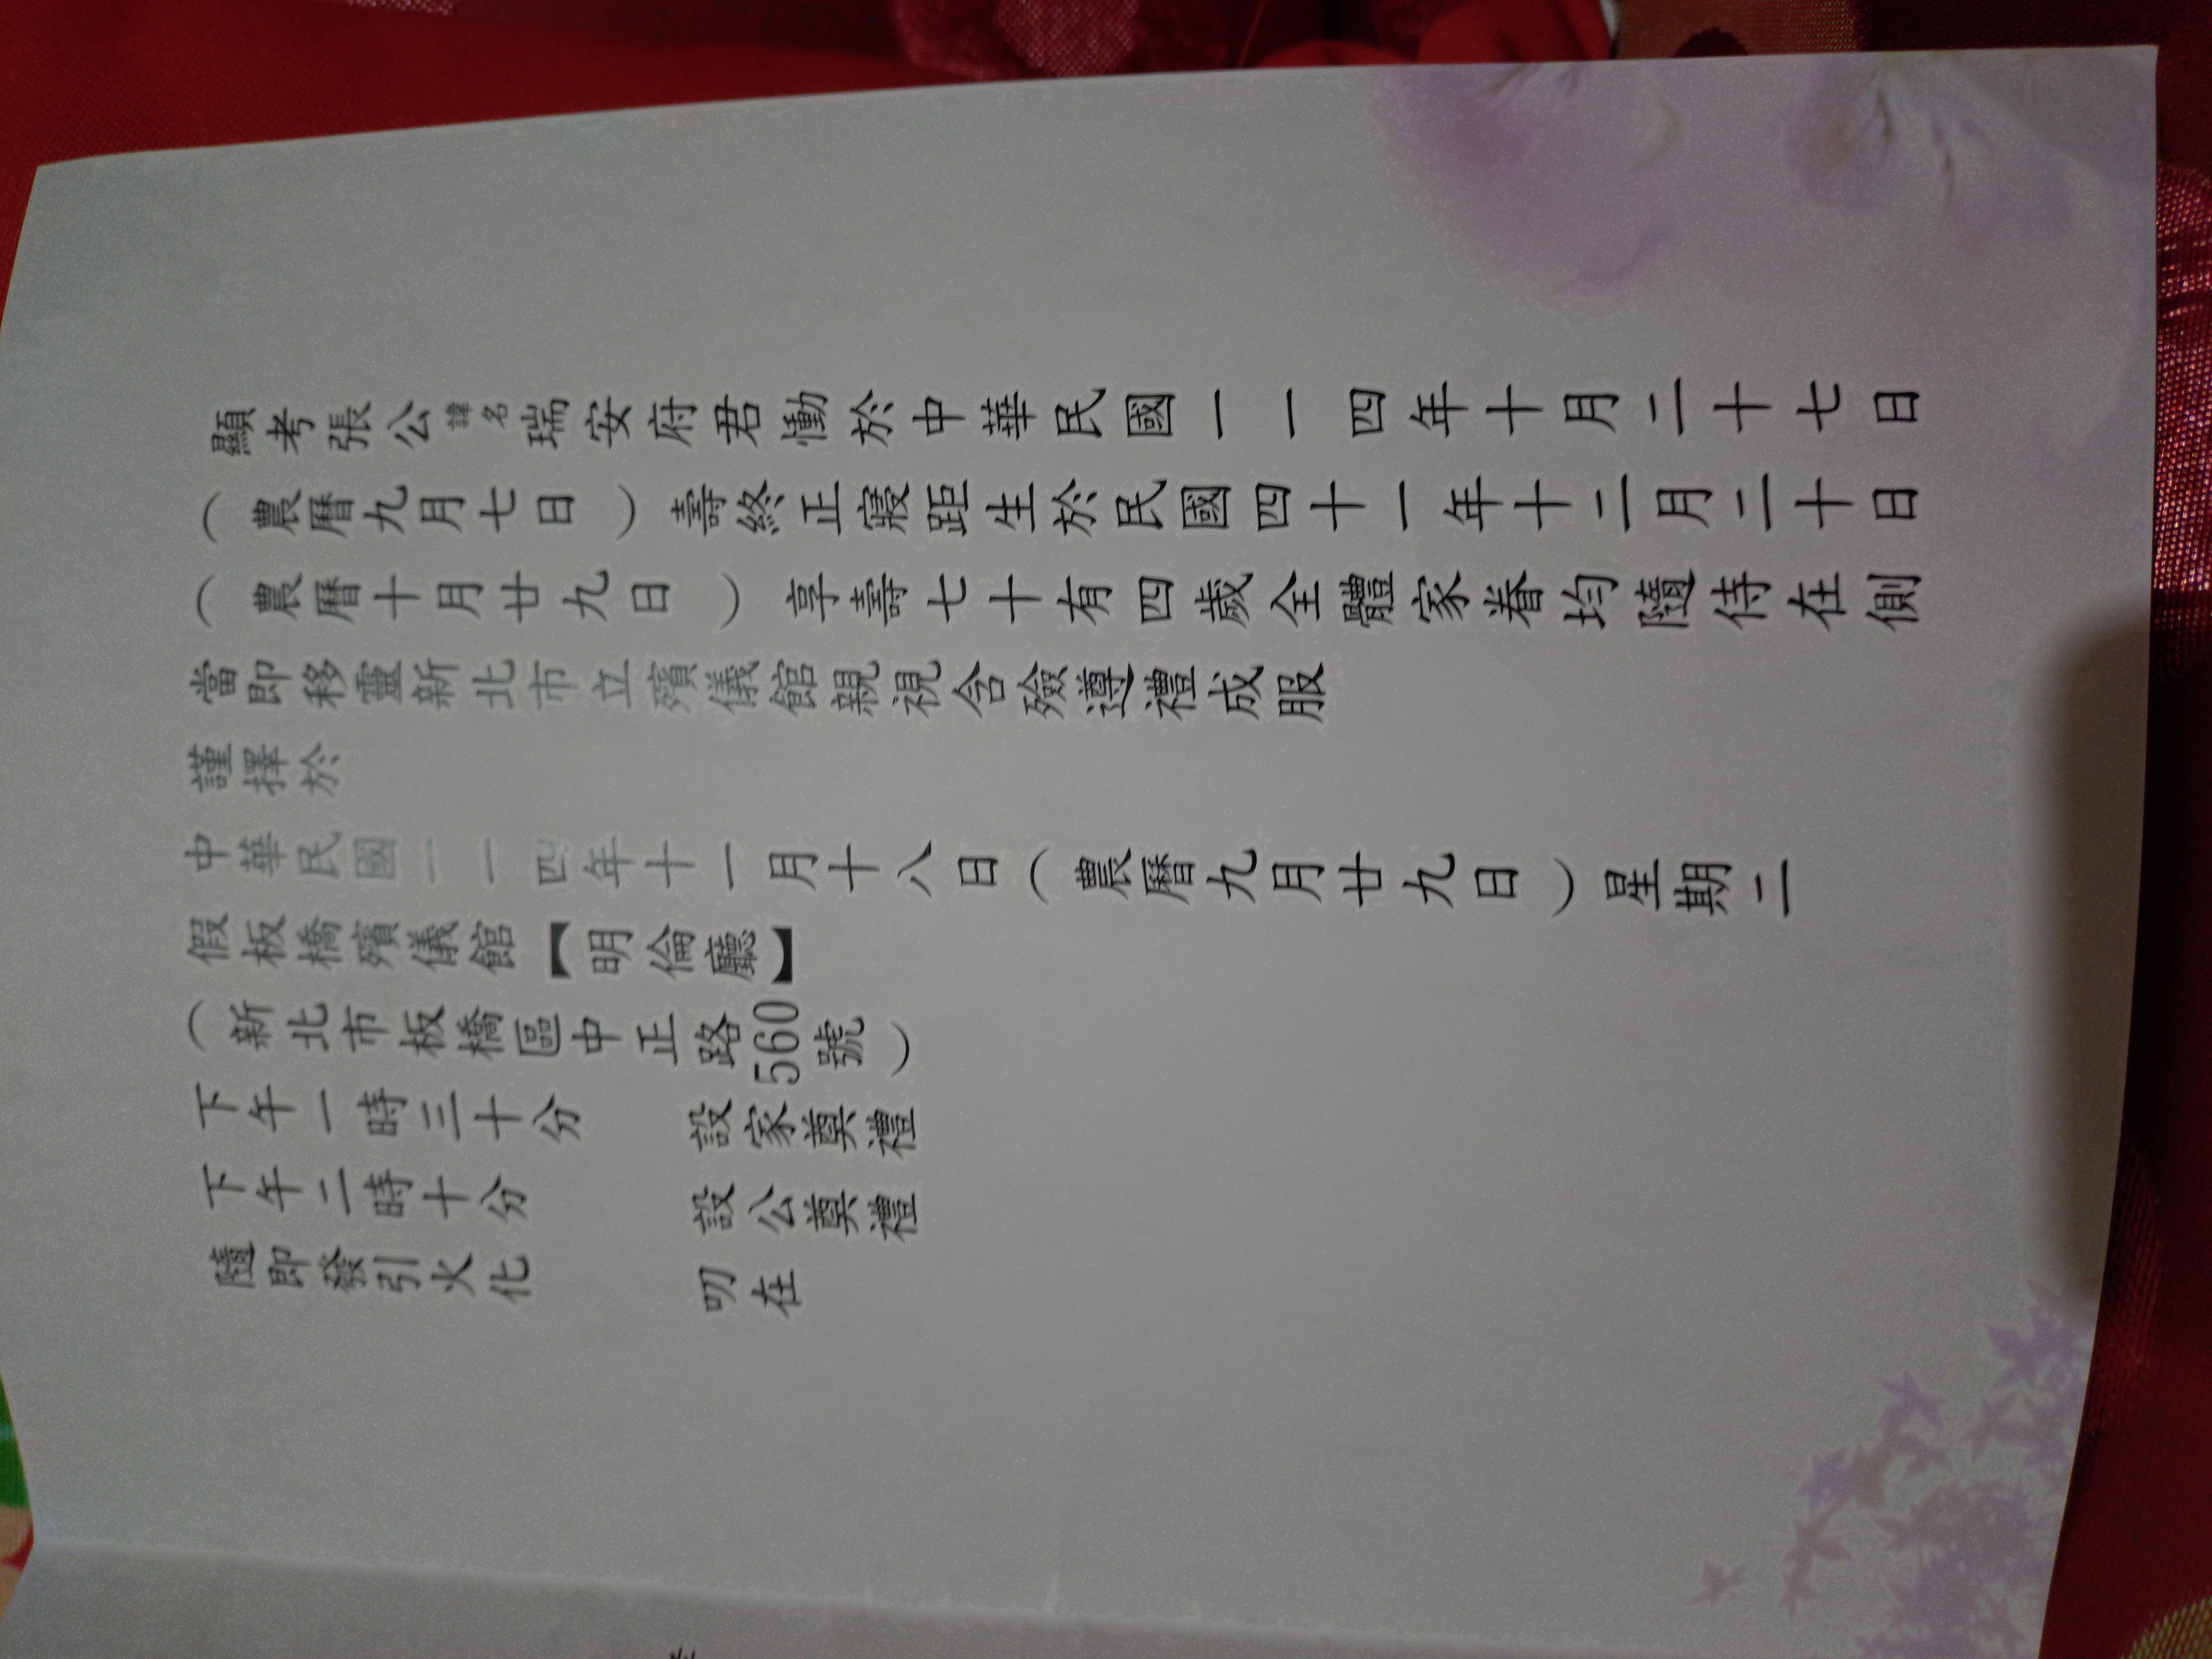 顯考張公諱名瑞安府君慟於中華民國一一四年十月二十七日
（農曆九月七日）壽終正寢距生於民國四十一年十二月二十日
（農曆十月廿九日）享壽七十有四歲全體家眷均隨侍在側
當即移靈新北市立殯儀館親視含殮遵禮成服
謹擇於
中華民國一一四年十一月十八日（農曆九月廿九日）星期二
假板橋殯儀館【明倫廳】
（新北市板橋區中正路560號）
下午一時三十分 設家奠禮
下午二時十分 設公奠禮
隨即發引火化 叨在